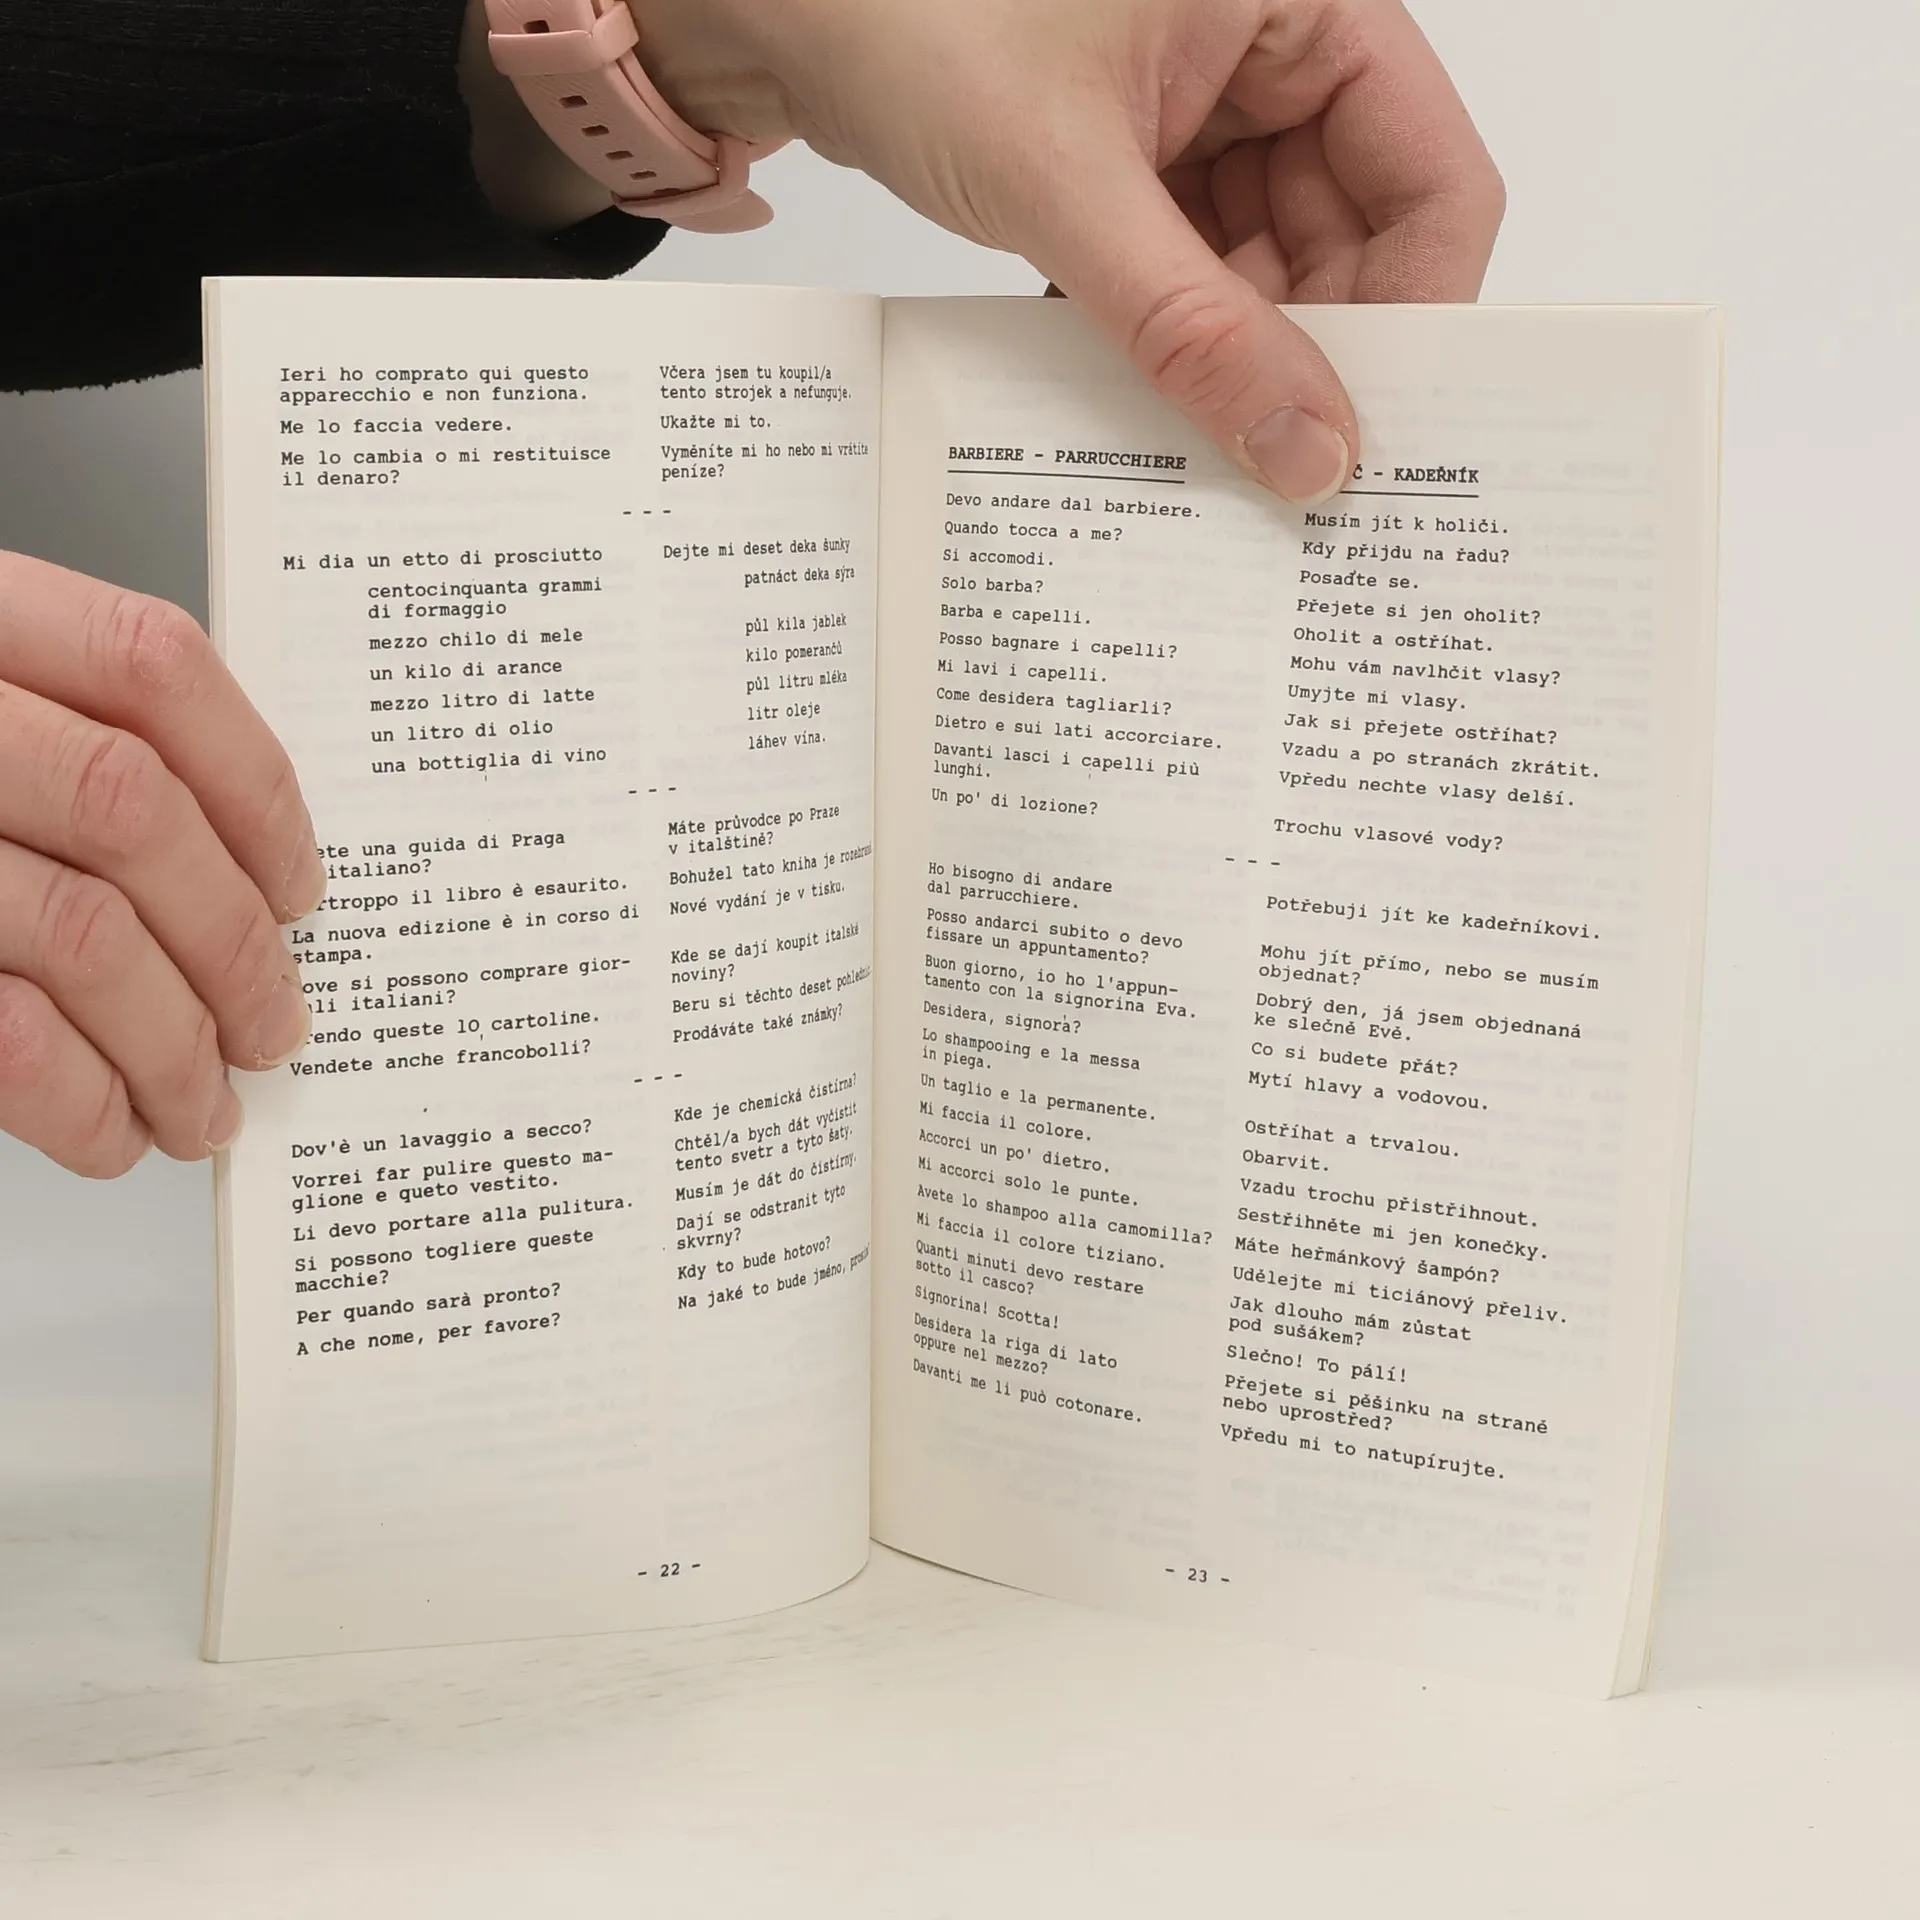 Ieri ho comprato qui questo
apparecchio e non funziona.
Me lo faccia vedere.
Me lo cambia o mi restituisce
il denaro?
Včera jsem tu koupil/a
tento strojek a nefunguje.
Ukažte mi to.
Vyměníte mi ho nebo mi vrátíte
peníze?
- - -
Mi dia un etto di prosciutto
centocinquanta grammi
di formaggio
mezzo chilo di mele
un kilo di arance
mezzo litro di latte
un litro di olio
una bottiglia di vino
Dejte mi deset deka šunky
patnáct deka sýra
půl kila jablek
kilo pomerančů
půl litru mléka
litr oleje
láhev vína.
- - -
una guida di Praga
italiano?
il libro è esaurito.
La nuova edizione è in corso di
stampa.
si possono comprare gior-
italiani?
queste 10 cartoline.
Vendete anche francobolli?
Máte průvodce po Praze
v italštině?
Bohužel tato kniha je
Nové vydání je v tisku.
Kde se dají koupit italské
noviny?
Beru si těchto deset
Prodáváte také známky?
- - -
Dov'è un lavaggio a secco?
Vorrei far pulire questo ma-
glione e queto vestito.
Li devo portare alla pulitura.
Si possono togliere queste
macchie?
Per quando sarà pronto?
A che nome, per favore?
Kde je chemická čistírna?
Chtěl/a bych dát vyčistit
tento svetr a tyto šaty.
Musím je dát do čistírny.
Dají se odstranit tyto
skvrny?
Kdy to bude hotovo?
Na jaké to bude jméno,
- 22 -
BARBIERE - PARRUCCHIERE
Devo andare dal barbiere.
Quando tocca a me?
Si accomodi.
Solo barba?
Barba e capelli.
Posso bagnare i capelli?
Mi lavi i capelli.
Come desidera tagliarli?
Dietro e sui lati accorciare.
Davanti lasci i capelli più
lunghi.
Un po' di lozione?
- KADEŘNÍK
Musím jít k holiči.
Kdy přijdu na řadu?
Posaďte se.
Přejete si jen oholit?
Oholit a ostříhat.
Mohu vám navlhčit vlasy?
Umyjte mi vlasy.
Jak si přejete ostříhat?
Vzadu a po stranách zkrátit.
Vpředu nechte vlasy delší.
Trochu vlasové vody?
- - -
Ho bisogno di andare
dal parrucchiere.
Posso andarci subito o devo
fissare un appuntamento?
Buon giorno, io ho l'appun-
tamento con la signorina Eva.
Desidera, signora?
Lo shampooing e la messa
in piega.
Un taglio e la permanente.
Mi faccia il colore.
Accorci un po' dietro.
Mi accorci solo le punte.
Avete lo shampoo alla camomilla?
Mi faccia il colore tiziano.
Quanti minuti devo restare
sotto il casco?
Signorina! Scotta!
Desidera la riga di lato
oppure nel mezzo?
Davanti me li può cotonare.
Potřebuji jít ke kadeřníkovi.
Mohu jít přímo, nebo se musím
objednat?
Dobrý den, já jsem objednaná
ke slečně Evě.
Co si budete přát?
Mytí hlavy a vodovou.
Ostříhat a trvalou.
Obarvit.
Vzadu trochu přistřihnout.
Sestřihněte mi jen konečky.
Máte heřmánkový šampón?
Udělejte mi ticiánový přeliv.
Jak dlouho mám zůstat
pod sušákem?
Slečno! To pálí!
Přejete si pěšinku na straně
nebo uprostřed?
Vpředu mi to natupírujte.
- 23 -